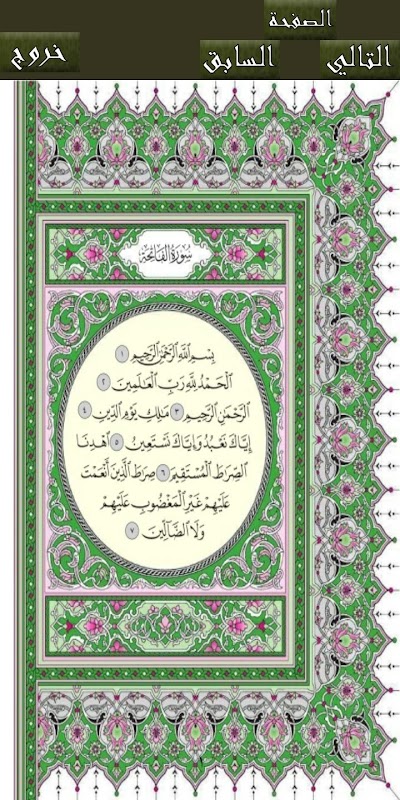 الصفحة
التالي السابق خروج
سُورَةُ الفَاتِحَةِ
بِسْمِ اللَّهِ الرَّحْمَٰنِ الرَّحِيمِ ١
الْحَمْدُ لِلَّهِ رَبِّ الْعَالَمِينَ ٢
الرَّحْمَٰنِ الرَّحِيمِ ٣ مَالِكِ يَوْمِ الدِّينِ ٤
إِيَّاكَ نَعْبُدُ وَإِيَّاكَ نَسْتَعِينُ ٥ اهْدِنَا
الصِّرَاطَ الْمُسْتَقِيمَ ٦ صِرَاطَ الَّذِينَ أَنْعَمْتَ
عَلَيْهِمْ غَيْرِ الْمَغْضُوبِ عَلَيْهِمْ
وَلَا الضَّالِّينَ ٧